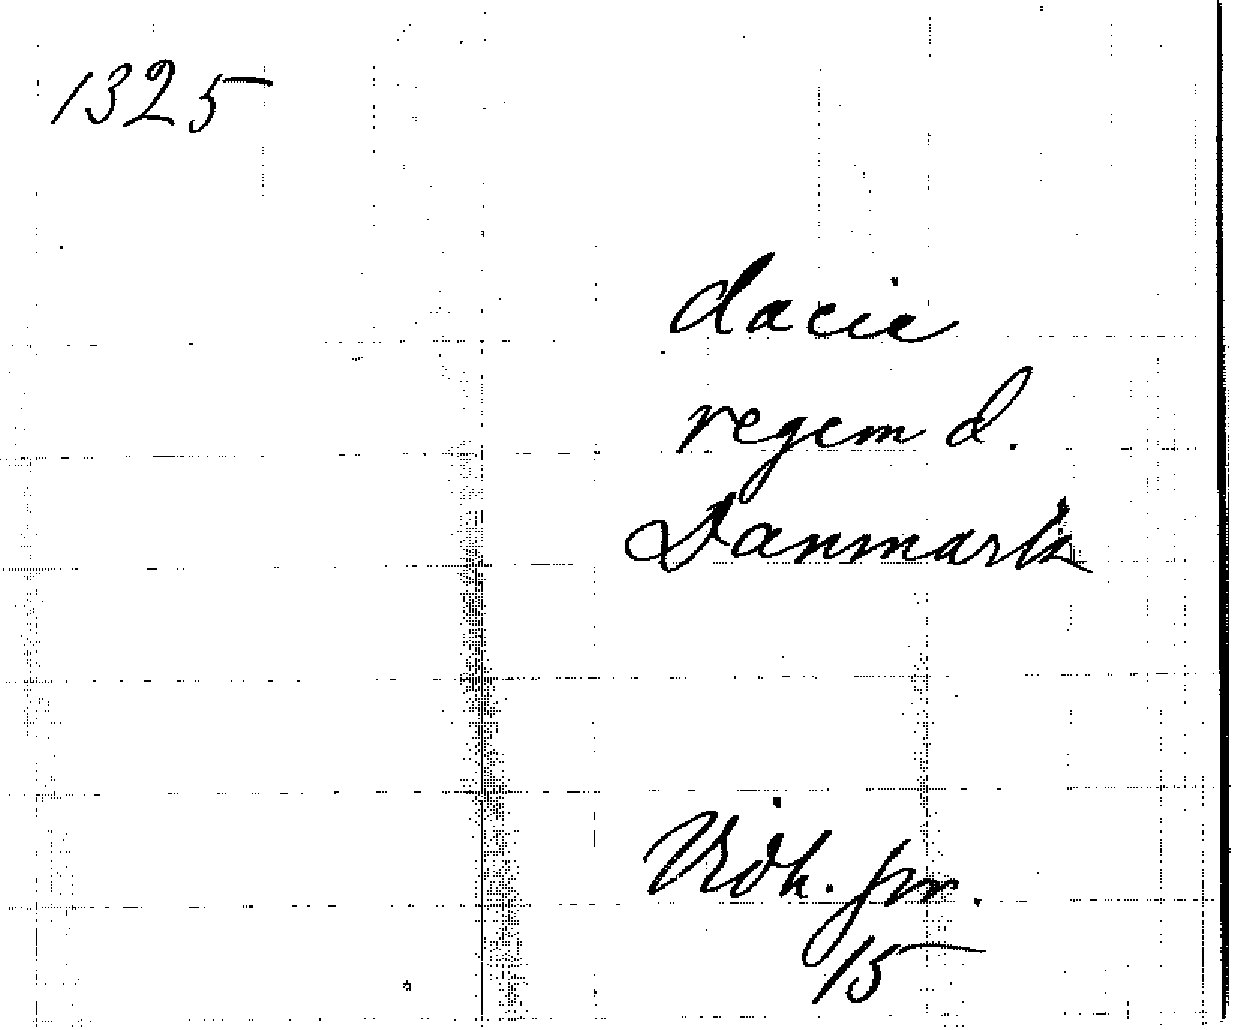 1325
dacie
regem d.
Danmark
Vidh. pr.
15